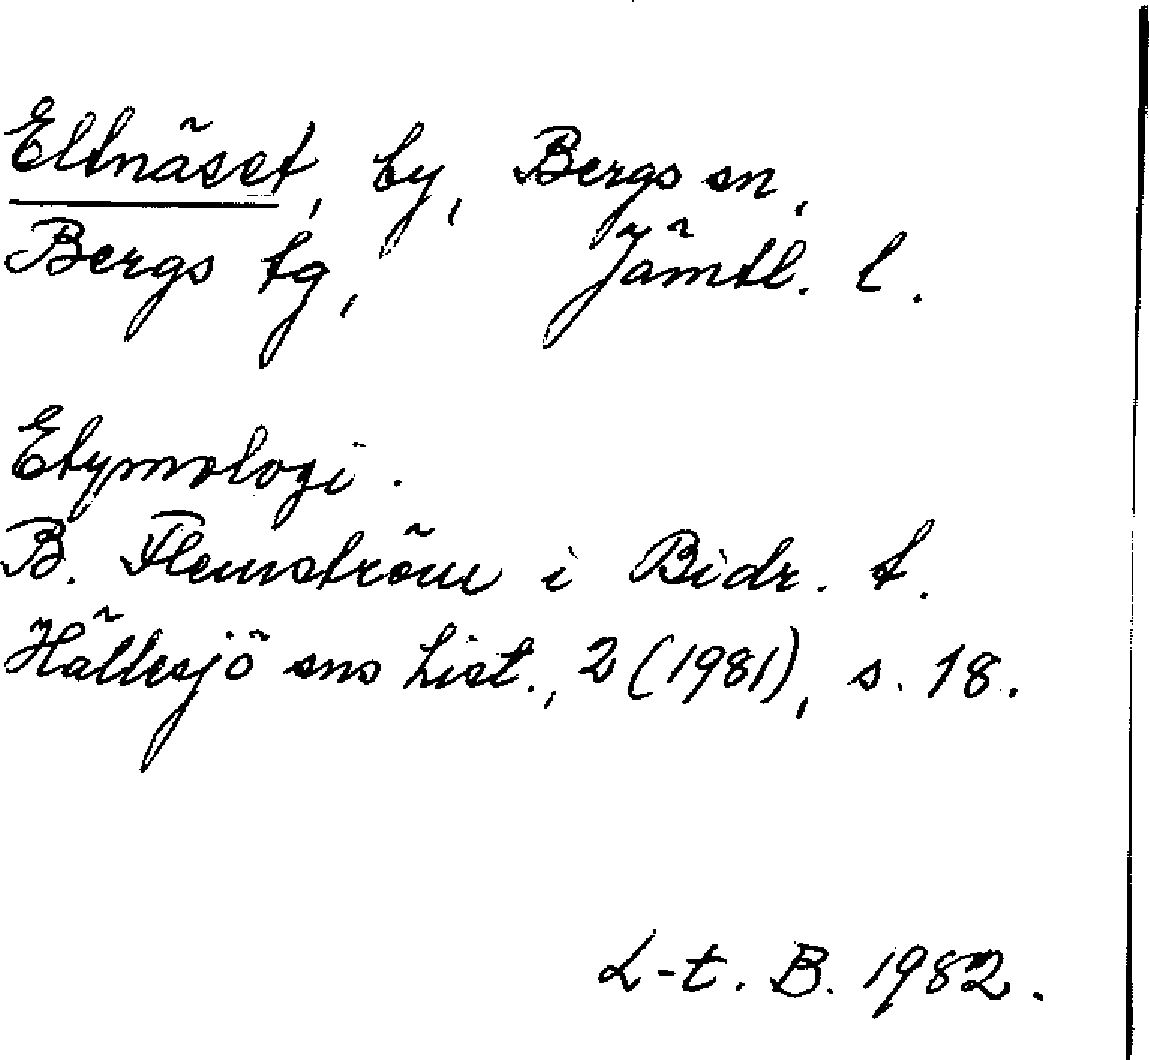 Eltnäset, by, Bergs sn,
Bergs tg, Jämtl. l.
Etymologi.
B. Flemström i Bidr. t.
Hällesjö sns hist., 2 (1981), s. 18.
L-t. B. 1982.